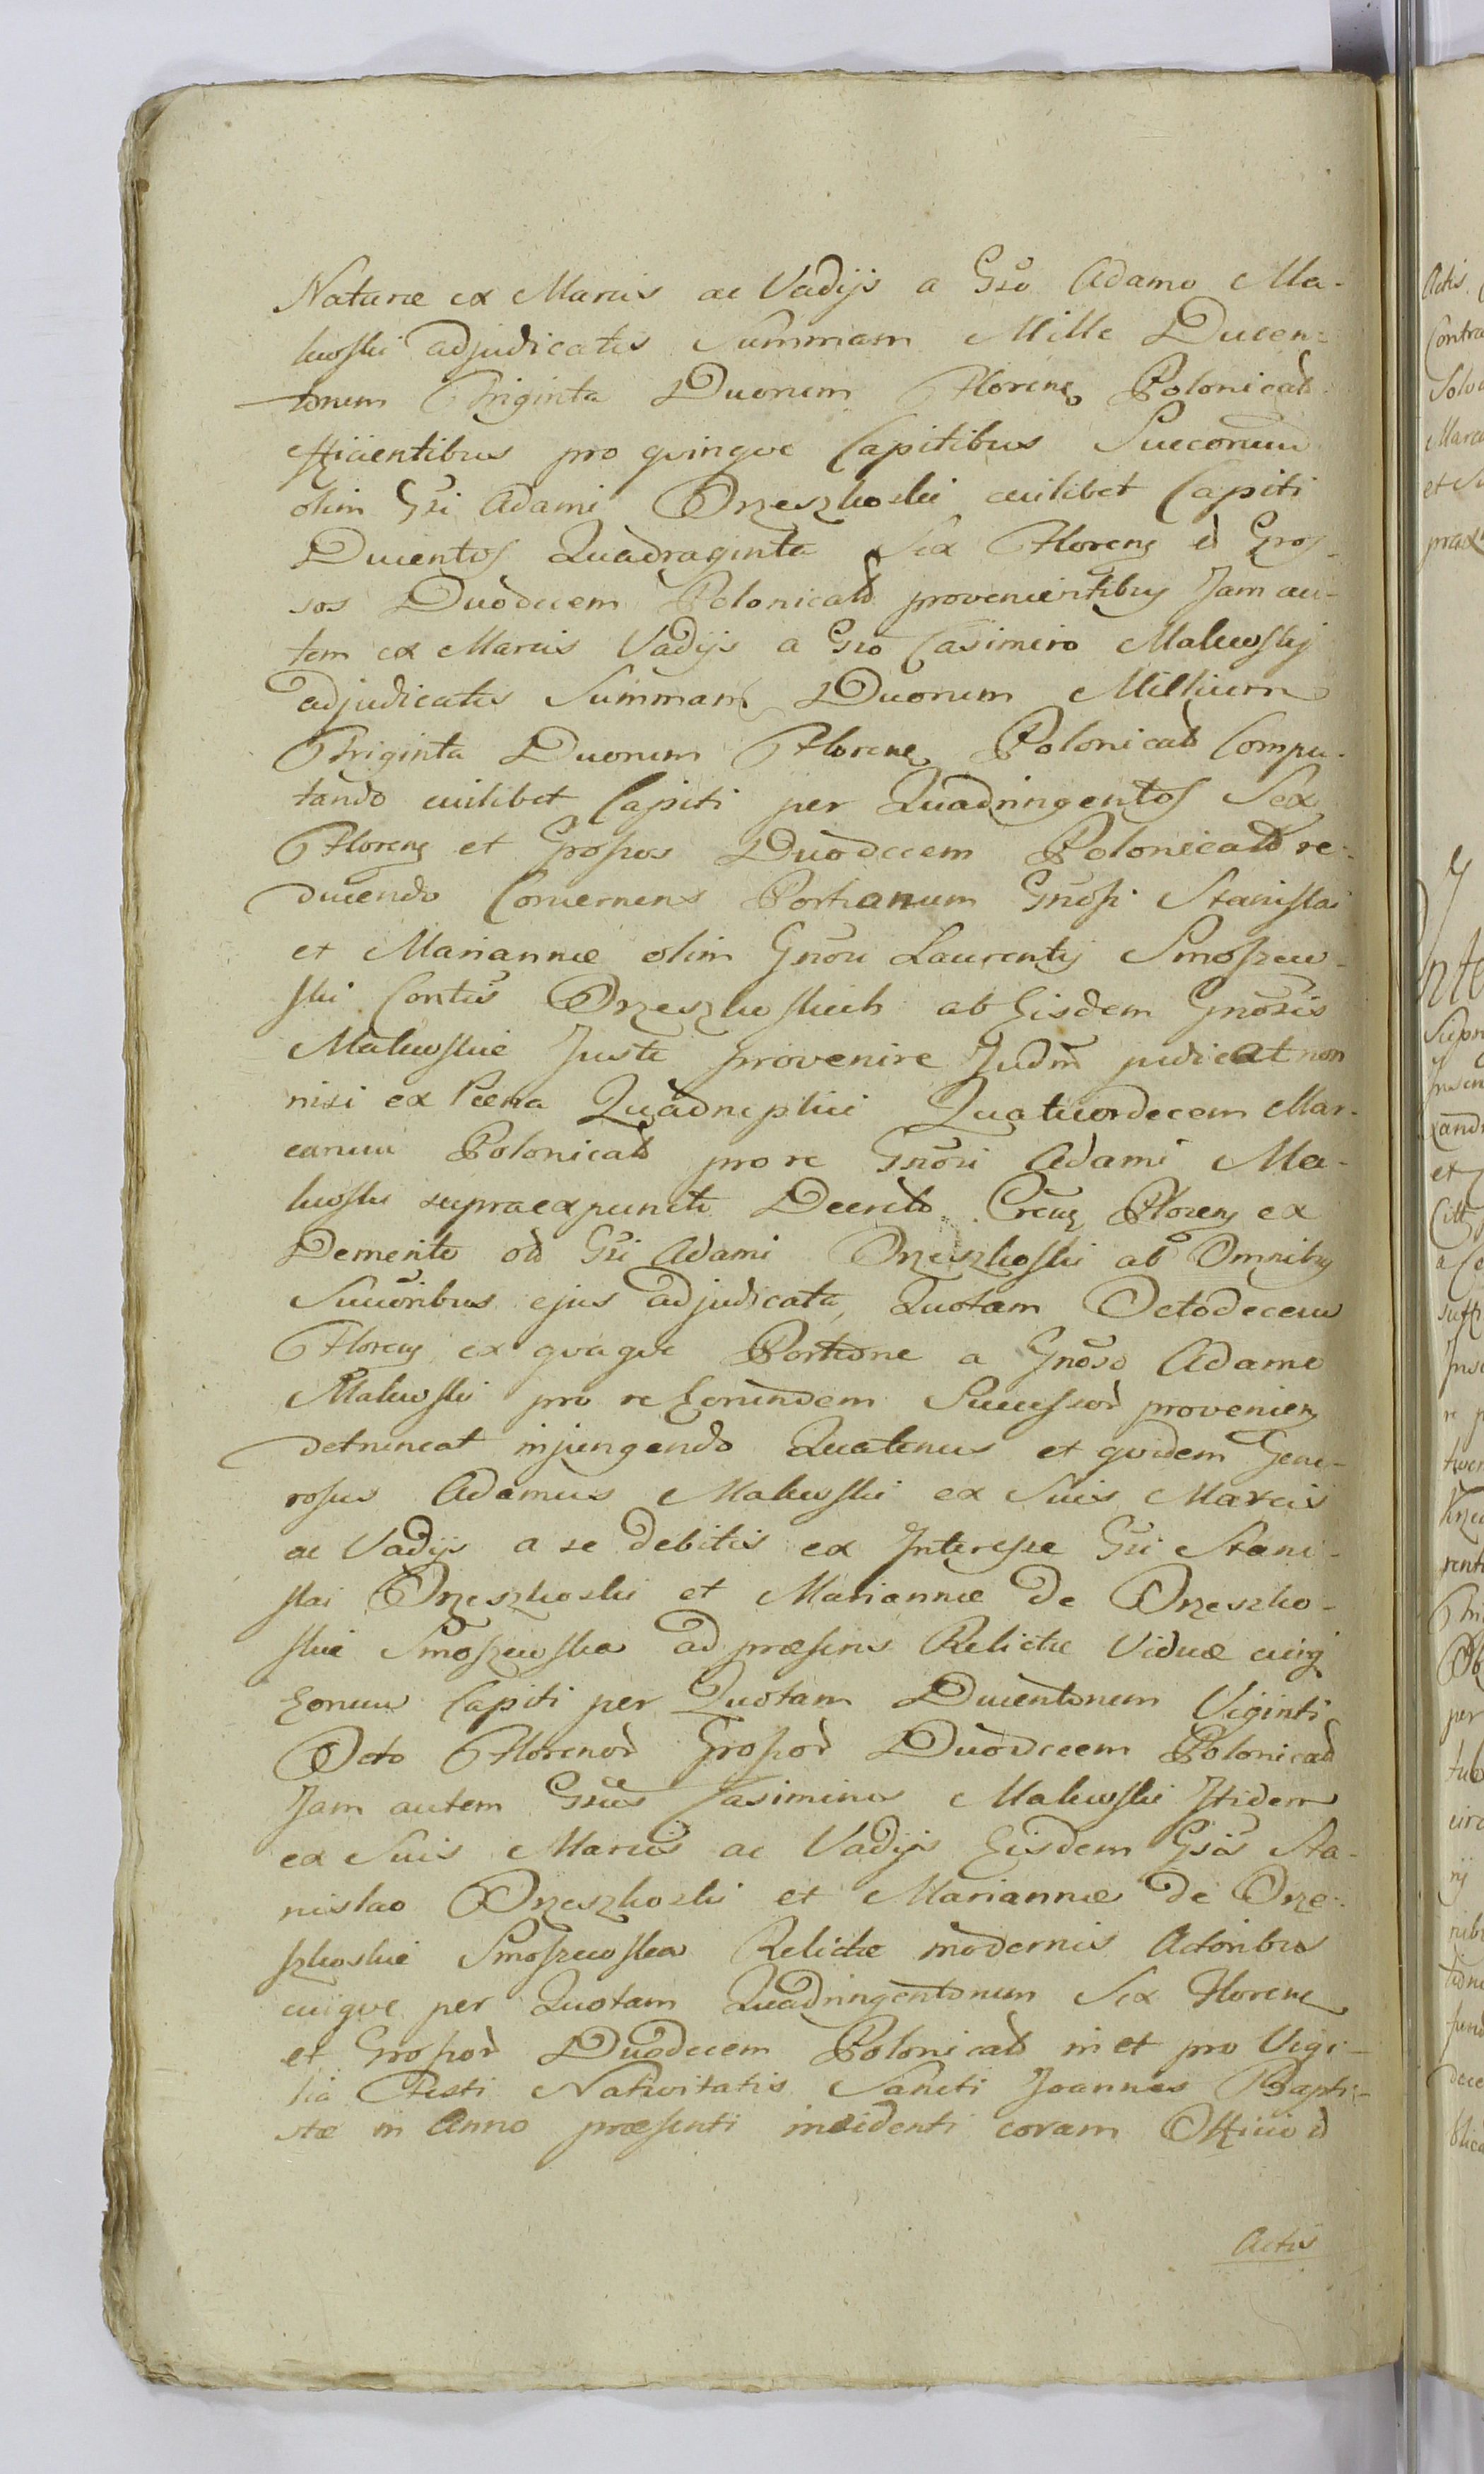 Naturæ ex Marcis ac Vadijs a Gso Adamo Ma-
kuoski adjudicatis Summam Mille Ducen-
torum Triginta Duorum Floreng Polonicald
efficientibus pro qvinqve Capitibus Succorum
olim Gsi Adami Orzeszkoski cuilibet Capiti
Ducentos Quadraginta Sex Floreng et Gros-
sos Duodecem Polonicald provenientibus Jam au-
tem ex Marcis Vadijs a Gso Casimiro Makuoskj
adjudicatis Summam Duorum Millium
Triginta Duorum Floreng Polonicald Compu-
tando cuilibet Capiti per Quadringentos Sex
Floreng et Grossos Duodecem Polonicald re-
ducendo Concernens Portionum Gnosi Stanislai
et Mariannæ olim Gnosi Laurentij Smoszew-
ski Contis Orzeszkoskich ab Eisdem Gnosis
Makuoskie Juste provenire Judm judicat non
nisi ex Pæna Quadruplici Quatuordecem Mar-
carum Polonicald pro re Gnosi Adami Ma-
kuoski supraexpuncti Decreto Floreng ex
Demerito old Gsi Adami Orzeszkoski ab Omnibus
Succoribus ejus adjudicata, Quotam Octodecem
Floreng ex qvaqve Portione a Gnoso Adamo
Makuoski pro re Eorundem Successod provenien
detruncat injungendo Quatenus et qvidem Gene-
rosus Adamus Makuoski ex Suis Marcis
ac Vadijs a se debitis ex Interesse Gsi Stani-
slai Orzeszkoski et Mariannæ de Orzeszko-
skie Smoszewska ad præsens Relictæ Viduæ cuiq
Eorum Capiti per Quotam Ducentorum Viginti
Octo Florenod Grossod Duodecem Polonicald
Jam autem Gsus Casimirus Makuoski Itidem
ex Suis Marcis ac Vadijs Eisdem Gsis Sta-
nislao Orzeszkoski et Mariannæ de Orze-
szkoskie Smoszewska Relictæ modernis Actoribus
cuiqve per Quotam Quadringentorum Sex Floreng
et Grossod Duodecem Polonicald in et pro Vigi-
lia Festi Nativitatis Sancti Joannes Bapti-
stæ in Anno præsenti incidenti coram Officio et
Actis